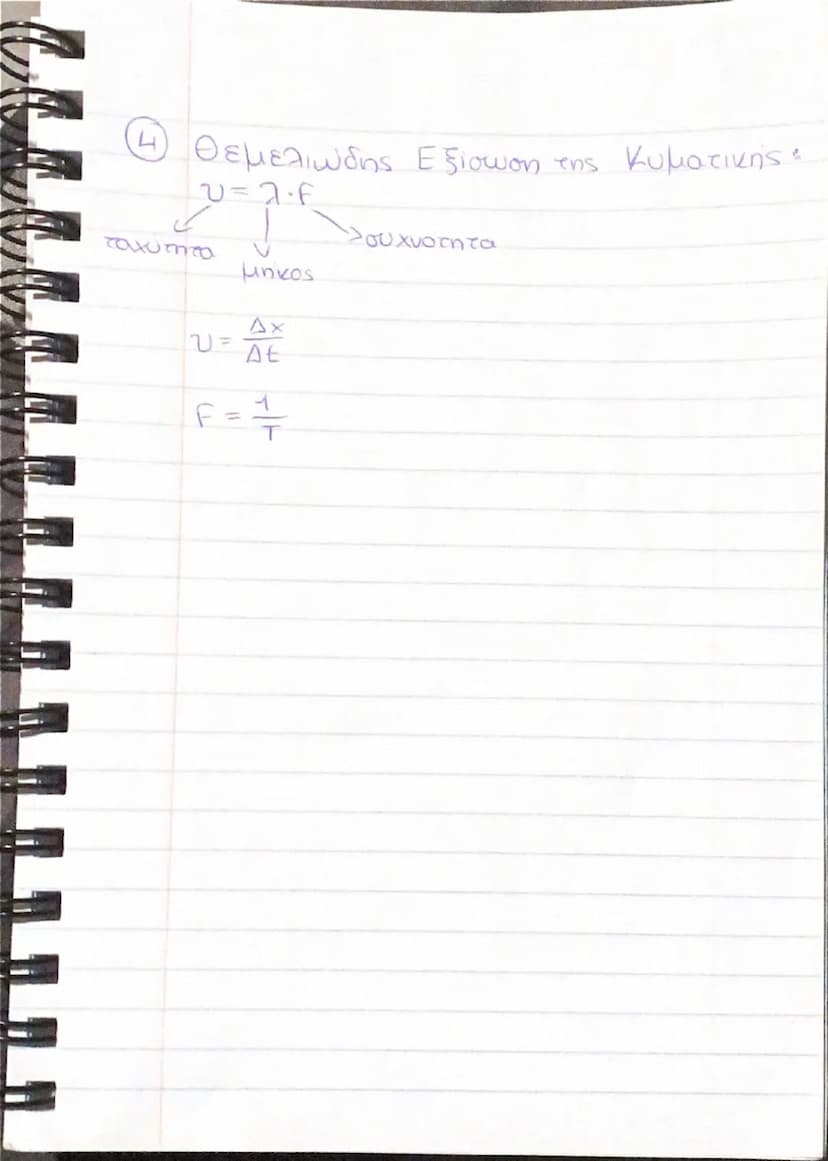 ④ Θεμελιωδης Εξίσωση της Κυματικης:
υ = λ · f
ταχυτητα
μηκος
συχνοτητα
υ = Δx/Δt
F = 1/T